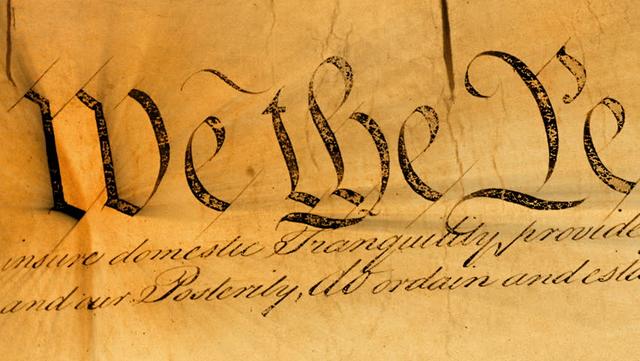 We the Pe
insure domestic Tranquility, provide
and our Posterity, do ordain and esta